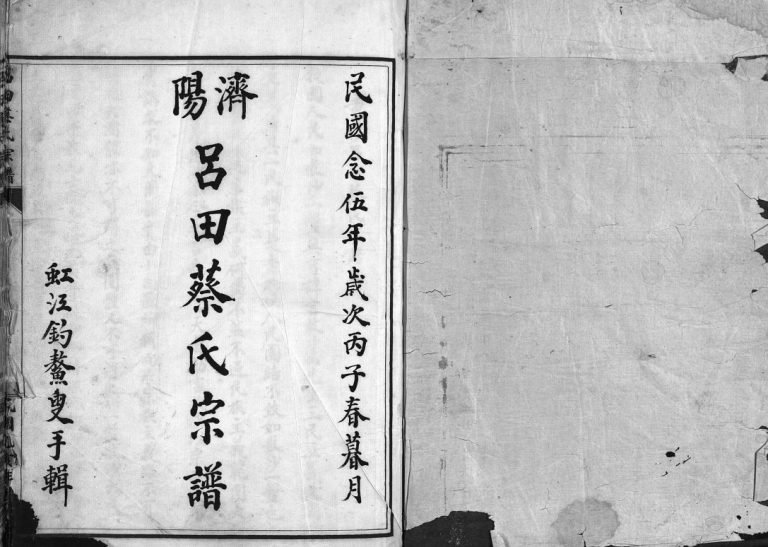 民國念伍年歲次丙子春暮月
濟陽
呂田蔡氏宗譜
虹江釣鰲叟手輯